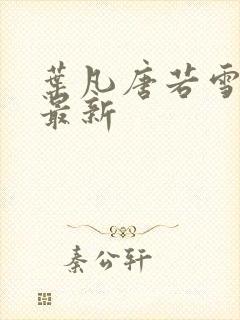 葉凡唐若雪
最新
秦公轩